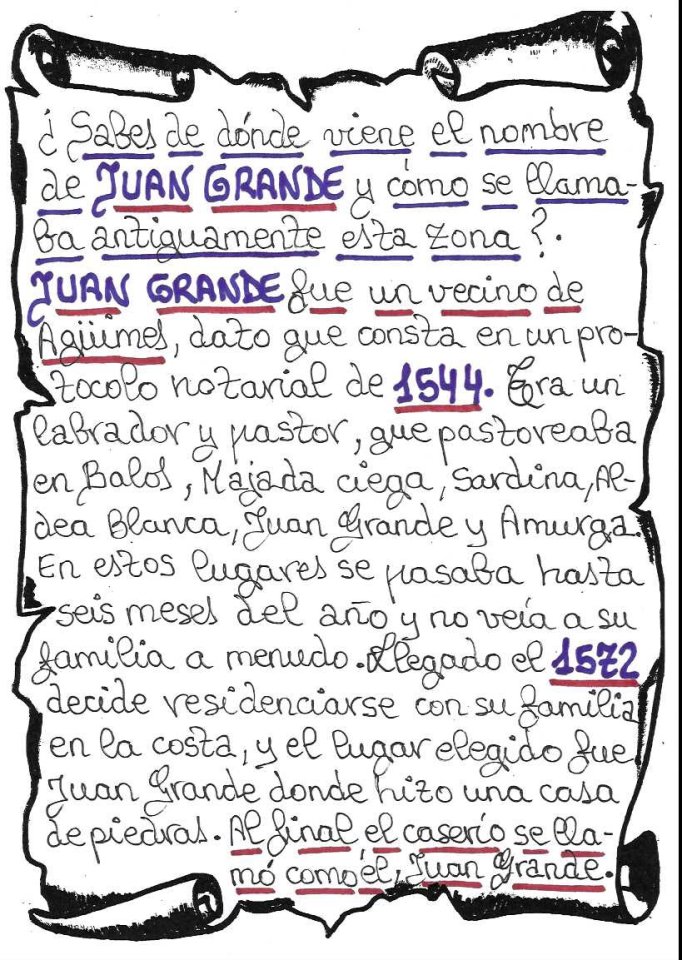 ¿Sabes de dónde viene el nombre
de JUAN GRANDE y cómo se llama-
ba antiguamente esta zona?.
JUAN GRANDE fue un vecino de
Agüimes, dato que consta en un pro-
tocolo notarial de 1544. Era un
labrador y pastor, que pastoreaba
en Balos, Majada ciega, Sardina, Al-
dea Blanca, Juan Grande y Amurga.
En estos lugares se pasaba hasta
seis meses del año y no veía a su
familia a menudo. Llegado el 1572
decide residenciarse con su familia
en la costa, y el lugar elegido fue
Juan Grande donde hizo una casa
de piedras. Al final el caserío se lla-
mó como él, Juan Grande.